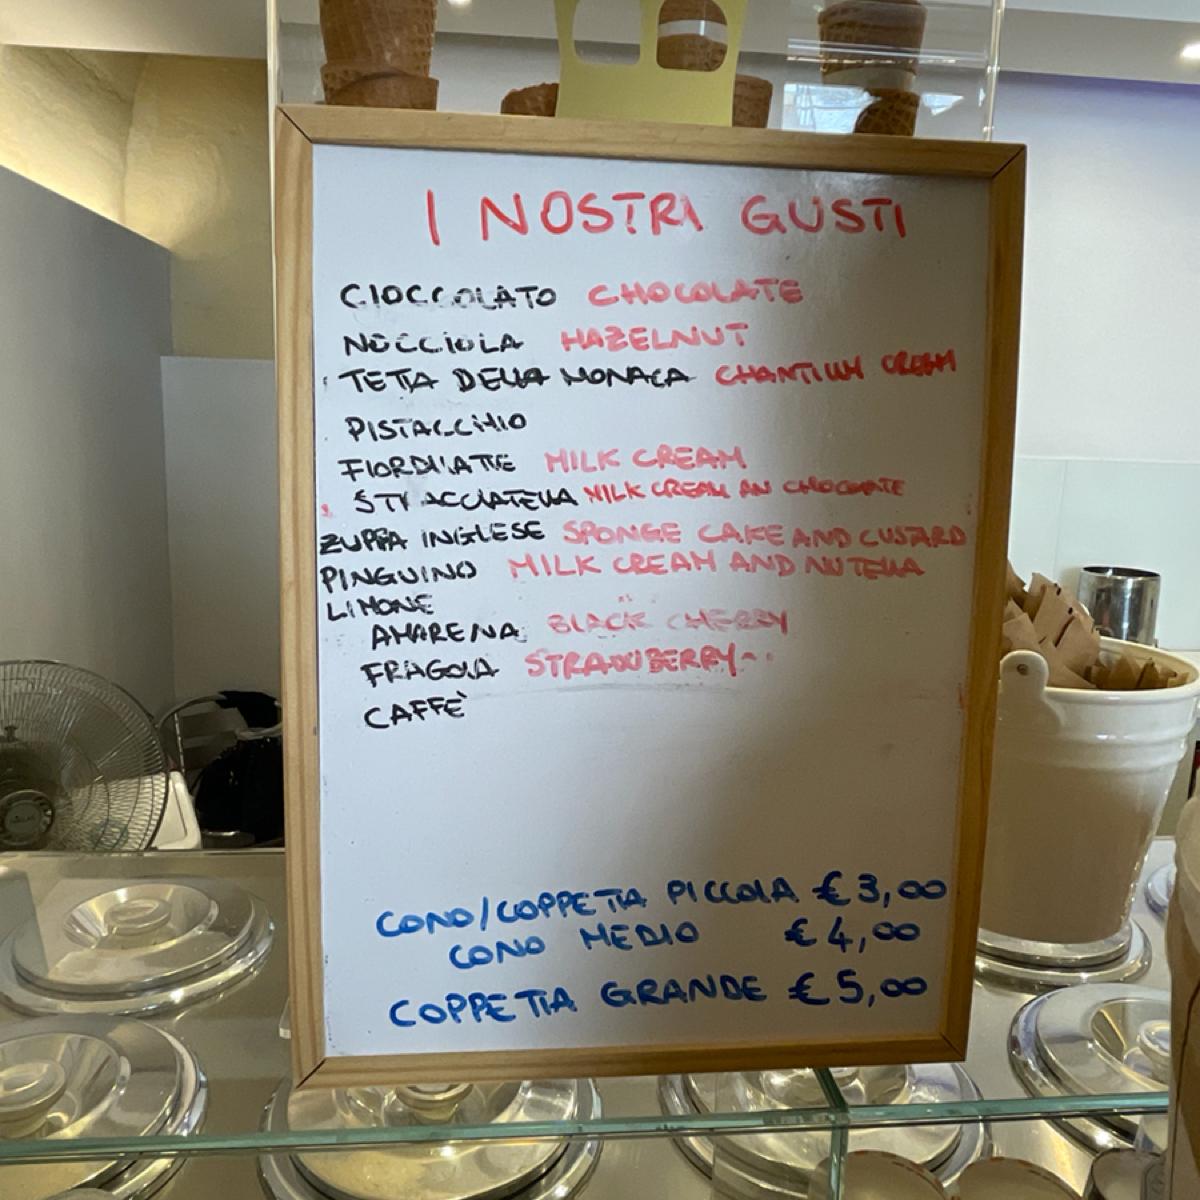 I NOSTRI GUSTI
CIOCCOLATO CHOCOLATE
NOCCIOLA HAZELNUT
TETTA DELLA MONACA CHANTILLY CREAM
PISTACCHIO
FIORDILATTE MILK CREAM
STRACCIATELLA MILK CREAM AN CHOCOLATE
ZUPPA INGLESE SPONGE CAKE AND CUSTARD
PINGUINO MILK CREAM AND NUTELLA
LIMONE
AMARENA BLACK CHERRY
FRAGOLA STRAWBERRY
CAFFÈ
CONO/COPPETTA PICCOLA € 3,00
CONO MEDIO € 4,00
COPPETTA GRANDE € 5,00